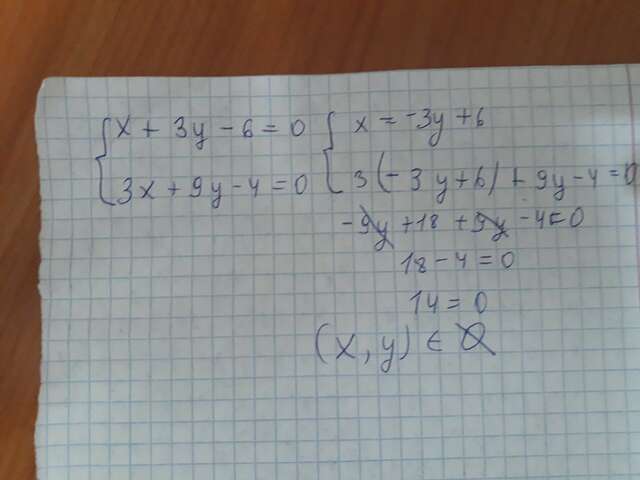 x + 3y - 6 = 0
3x + 9y - 4 = 0
x = -3y + 6
3(-3y + 6) + 9y - 4 = 0
-9y + 18 + 9y - 4 = 0
18 - 4 = 0
14 = 0
(x, y) ∈ Ø